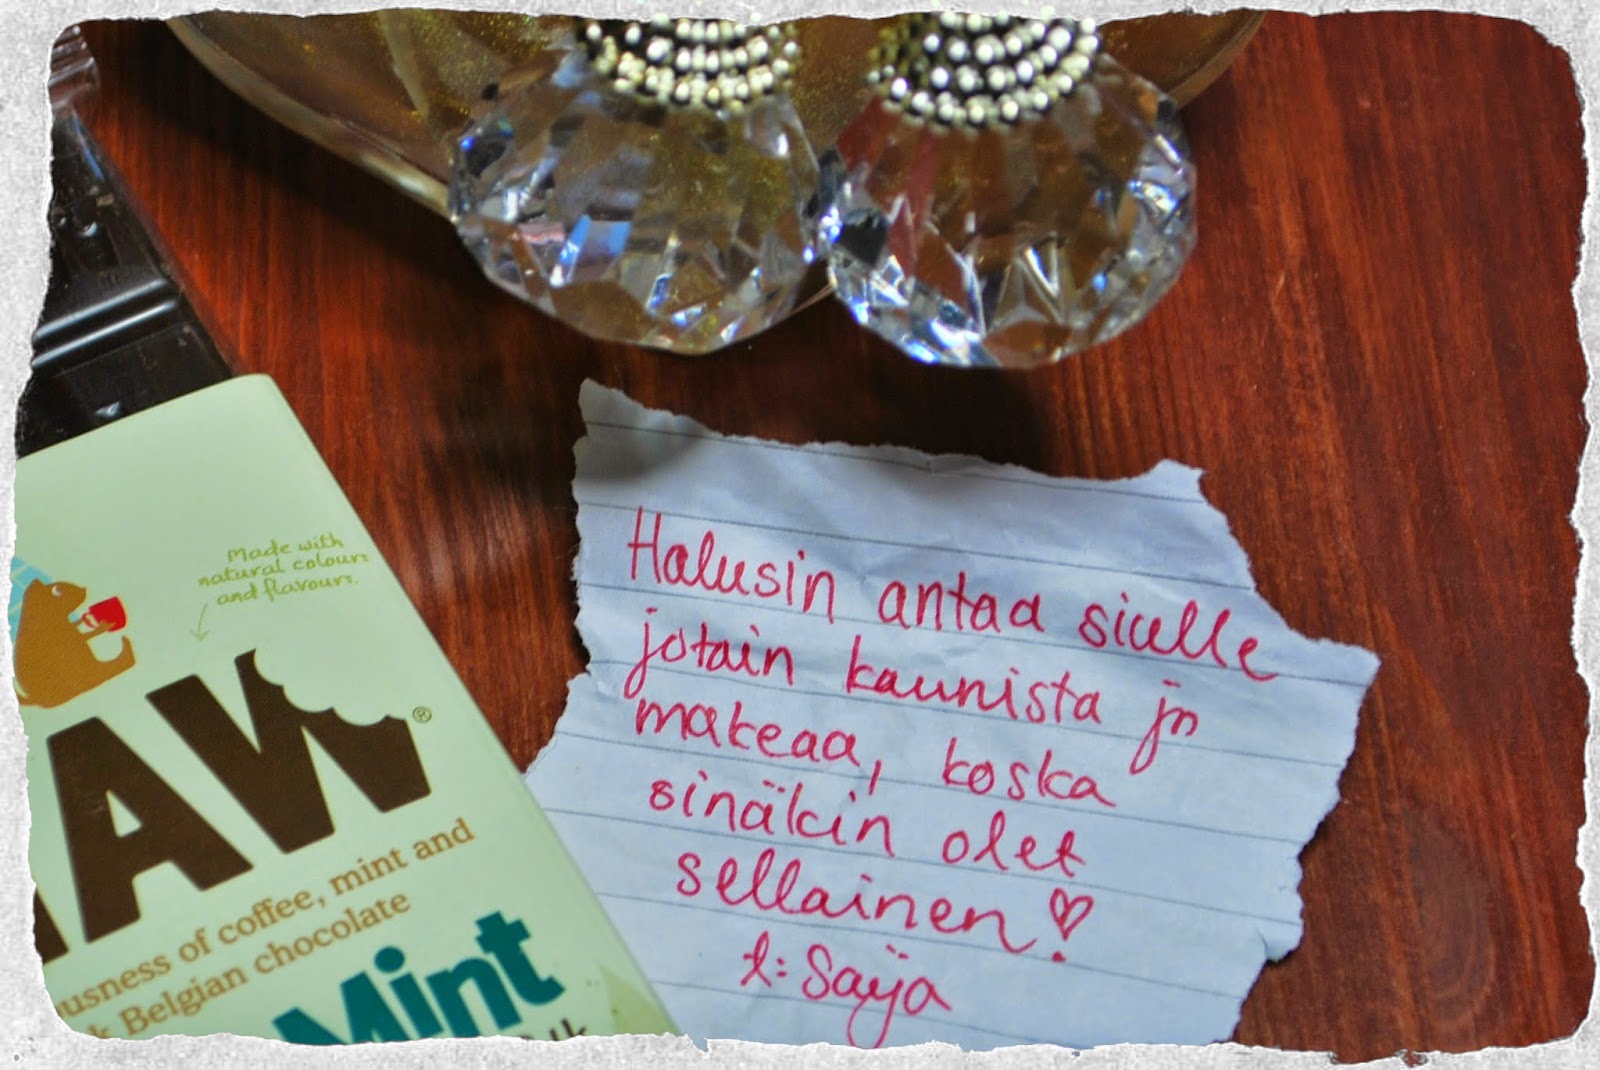 Made with
natural colours
and flavours.
AW®
ousness of coffee, mint and
k Belgian chocolate
Mint
Halusin antaa siulle
jotain kaunista ja
makeaa, koska
sinäkin olet
sellainen! ♡
t: Saija